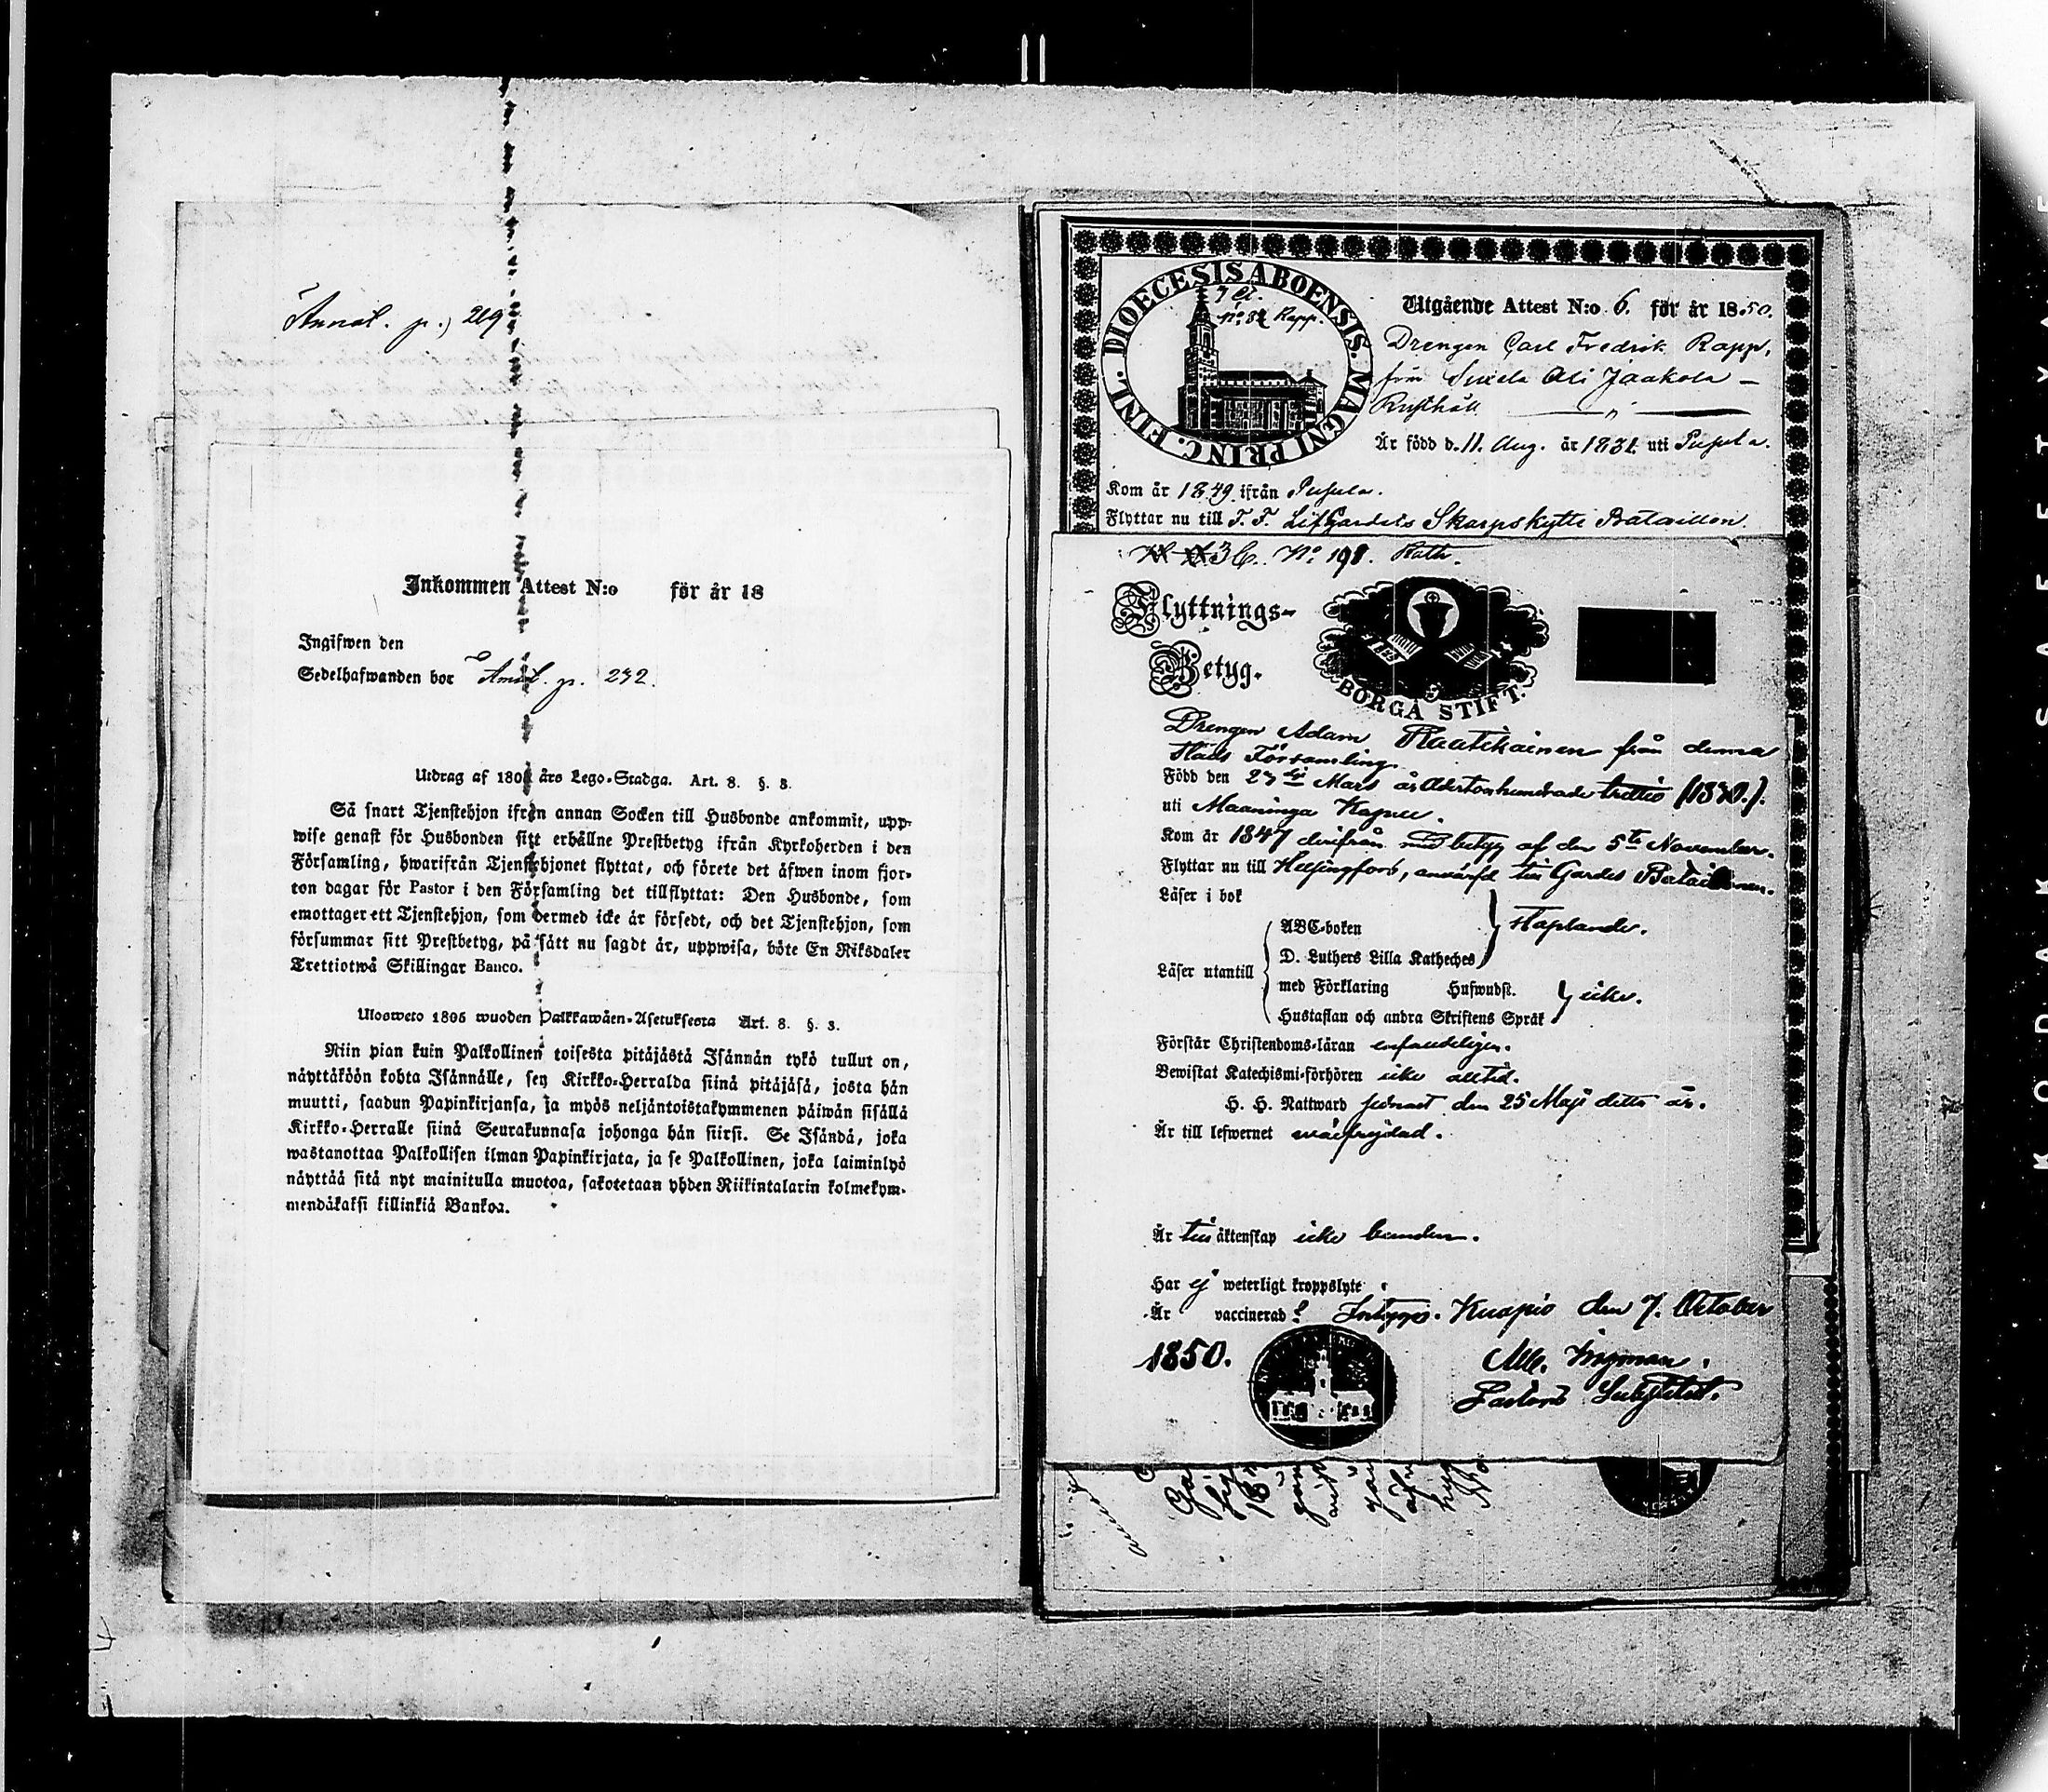 Annot. p. 219
Inkommen Attest N:o för år 18
Ingifwen den
Sedelhafwanden bor Annot. p. 232.
Utdrag af 1805 års Lego-Stadga. Art. 8. §. 3.
Så snart Tjenstehjon ifrån annan Socken till Husbonde ankommit, upp-
wise genast för Husbonden sitt erhållne Prestbetyg ifrån Kyrkoherden i den
Församling, hwarifrån Tjenstehjonet flyttat, och förete det äfwen inom fjor-
ton dagar för Pastor i den Församling det tillflyttat: Den Husbonde, som
emottager ett Tjenstehjon, som dermed icke är försedt, och det Tjenstehjon, som
försummar sitt Prestbetyg, på sätt nu sagdt är, uppwisa, böte En Riksdaler
Trettiotwå Skillingar Banco.
Ulosweto 1805 wuoden Palkkawäen-Asetuksesta Art. 8. §. 3.
Niin pian kuin Palkollinen toisesta pitäjästä Isännän tykö tullut on,
näyttäköön kohta Isännälle, sen Kirkko-Herralda siinä pitäjäsä, josta hän
muutti, saadun Papinkirjansa, ja myös neljäntoistakymmenen päiwän sisällä
Kirkko-Herralle siinä Seurakunnasa johonga hän siirsi. Se Isändä, joka
wastanottaa Palkollisen ilman Papinkirjata, ja se Palkollinen, joka laiminlyö
näyttää sitä nyt mainitulla muotoa, sakotetaan yhden Riikintalarin kolmekym-
mendäkaksi killinkiä Bankoa.
DIOECESIS ABOENSIS. MAGNI PRINC. FINL.
No 82 Rapp.
Utgående Attest N:o 6. för år 1850.
Drengen Carl Fredrik Rapp,
från Suxela Ali Jaakola –
Rusthåll
Är född d. 11. Aug. år 1831. uti Pusula.
Kom år 1849. ifrån Pusula.
Flyttar nu till F. F. LifGardets Skarpskytte Bataillon
3 C. No 198. Rath.
Flyttnings-
Betyg.
BORGÅ STIFT.
Drengen Adam Raatikainen från denna
Stads Församling
Född den 23dje Mars år Adertonhundrade trettio (1830.).
uti Maaninga Kapell.
Kom år 1847 derifrån med betyg af den 5te November.
Flyttar nu till Helsingfors, använd till Gardes Bataillonen.
Läser i bok
ABC-boken
D. Luthers Lilla Katheches } staplande.
Läser utantill
med Förklaring Hufwudst.
Hustaflan och andra Skriftens Språk } icke.
Förstår Christendoms-läran enfaldeligen.
Bewistat Katechismi-förhören icke alltid.
H. H. Nattward senast den 25 Maji detta år.
Är till lefwernet wälfrejdad.
Är till äktenskap icke bunden.
Har ej weterligt kroppslyte.
Är vaccinerad? Intygas. Kuopio den 7. October
1850.
Alb. Ingman.
Pastors Substitut.
KODAK SAFETY